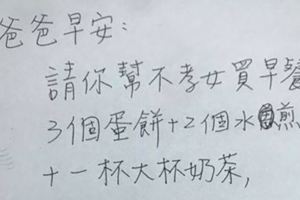 爸爸早安:
請你幫不孝女買早餐
3個蛋餅+2個水煎
+一杯大杯奶茶,